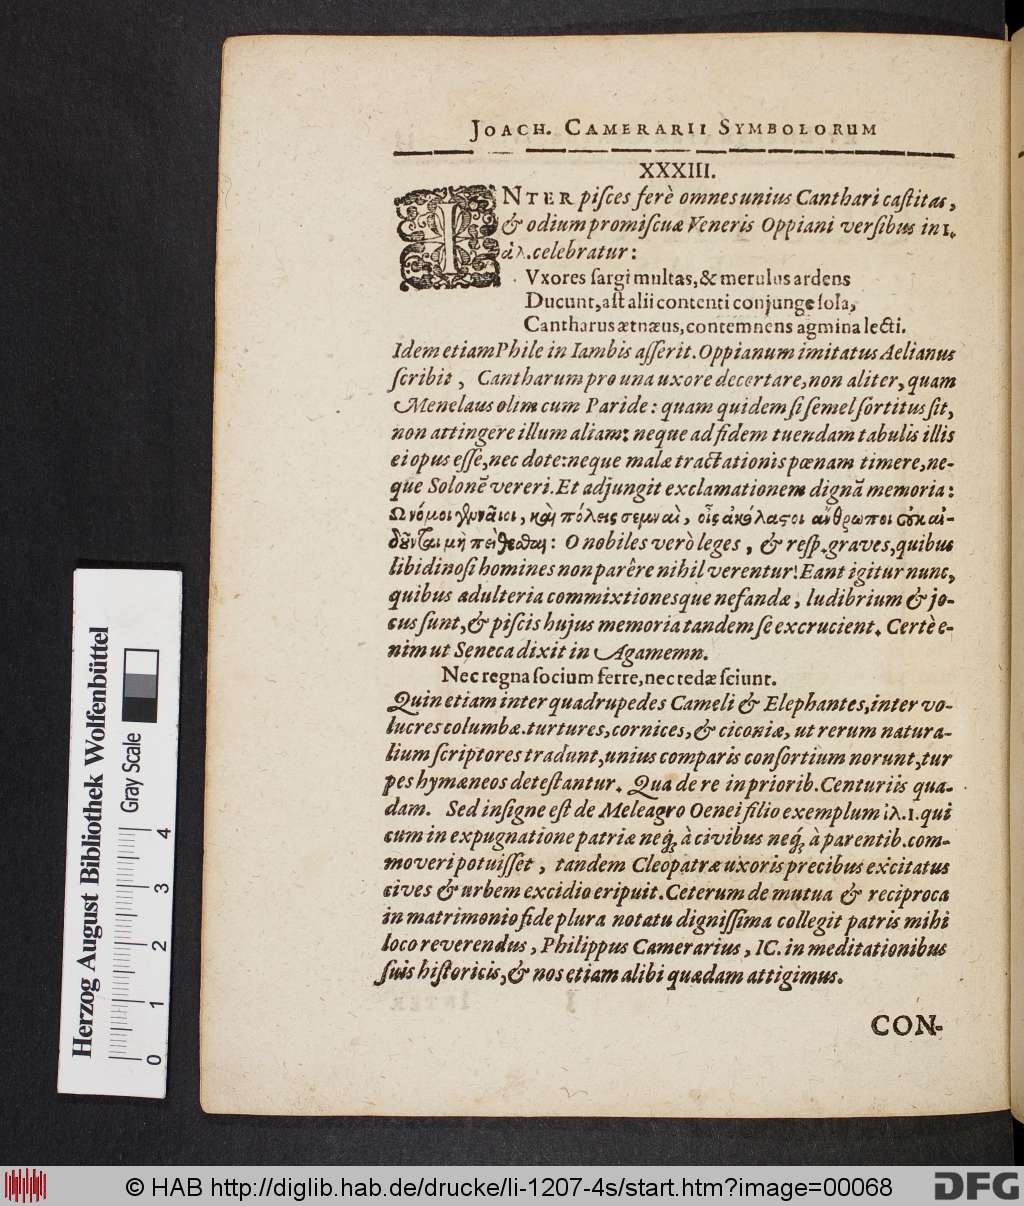 JOACH. CAMERARII SYMBOLORUM
XXXIII.
INTER piſces ferè omnes unius Canthari caſtitas,
& odium promiſcuæ Veneris Oppiani verſibus in 1.
ἁλ. celebratur:
Vxores ſargi multas, & merulus ardens
Ducunt, aſt alii contenti conjunge ſola,
Cantharus ætnæus, contemnens agmina lecti.
Idem etiam Phile in Iambis aſſerit. Oppianum imitatus Aelianus
ſcribit, Cantharum pro una uxore decertare, non aliter, quam
Menelaus olim cum Paride: quam quidem ſi ſemel ſortitus ſit,
non attingere illum aliam: neque ad fidem tuendam tabulis illis
ei opus eſſe, nec dote: neque malæ tractationis pœnam timere, ne-
que Solonē vereri. Et adjungit exclamationem dignā memoria:
Ω νόμοι γενναῖοι, καὶ πόλεις σεμναὶ, οἷς ἀκόλαστοι ἄνθρωποι οὐκ αἰ-
δοῦνται μὴ πείθεσθαι: O nobiles verò leges, & reſp. graves, quibus
libidinoſi homines non parêre nihil verentur! Eant igitur nunc,
quibus adulteria commixtionesque nefandæ, ludibrium & jo-
cus ſunt, & piſcis hujus memoria tandem ſe excrucient. Certè e-
nim ut Seneca dixit in Agamemn.
Nec regna ſocium ferre, nec tedæ ſciunt.
Quin etiam inter quadrupedes Cameli & Elephantes, inter vo-
lucres columbæ. turtures, cornices, & ciconiæ, ut rerum natura-
lium ſcriptores tradunt, unius comparis conſortium norunt, tur
pes hymæneos deteſtantur. Qua de re in priorib. Centuriis quæ-
dam. Sed inſigne eſt de Meleagro Oenei filio exemplum ἰλ. 1. qui
cum in expugnatione patriæ neq́; à civibus neq́; à parentib. com-
moveri potuiſſet, tandem Cleopatræ uxoris precibus excitatus
cives & urbem excidio eripuit. Ceterum de mutua & reciproca
in matrimonio fide plura notatu digniſſima collegit patris mihi
loco reverendus, Philippus Camerarius, IC. in meditationibus
ſuis hiſtoricis, & nos etiam alibi quædam attigimus.
CON-
Herzog August Bibliothek Wolfenbüttel
Gray Scale
0 1 2 3 4
© HAB http://diglib.hab.de/drucke/li-1207-4s/start.htm?image=00068
DFG